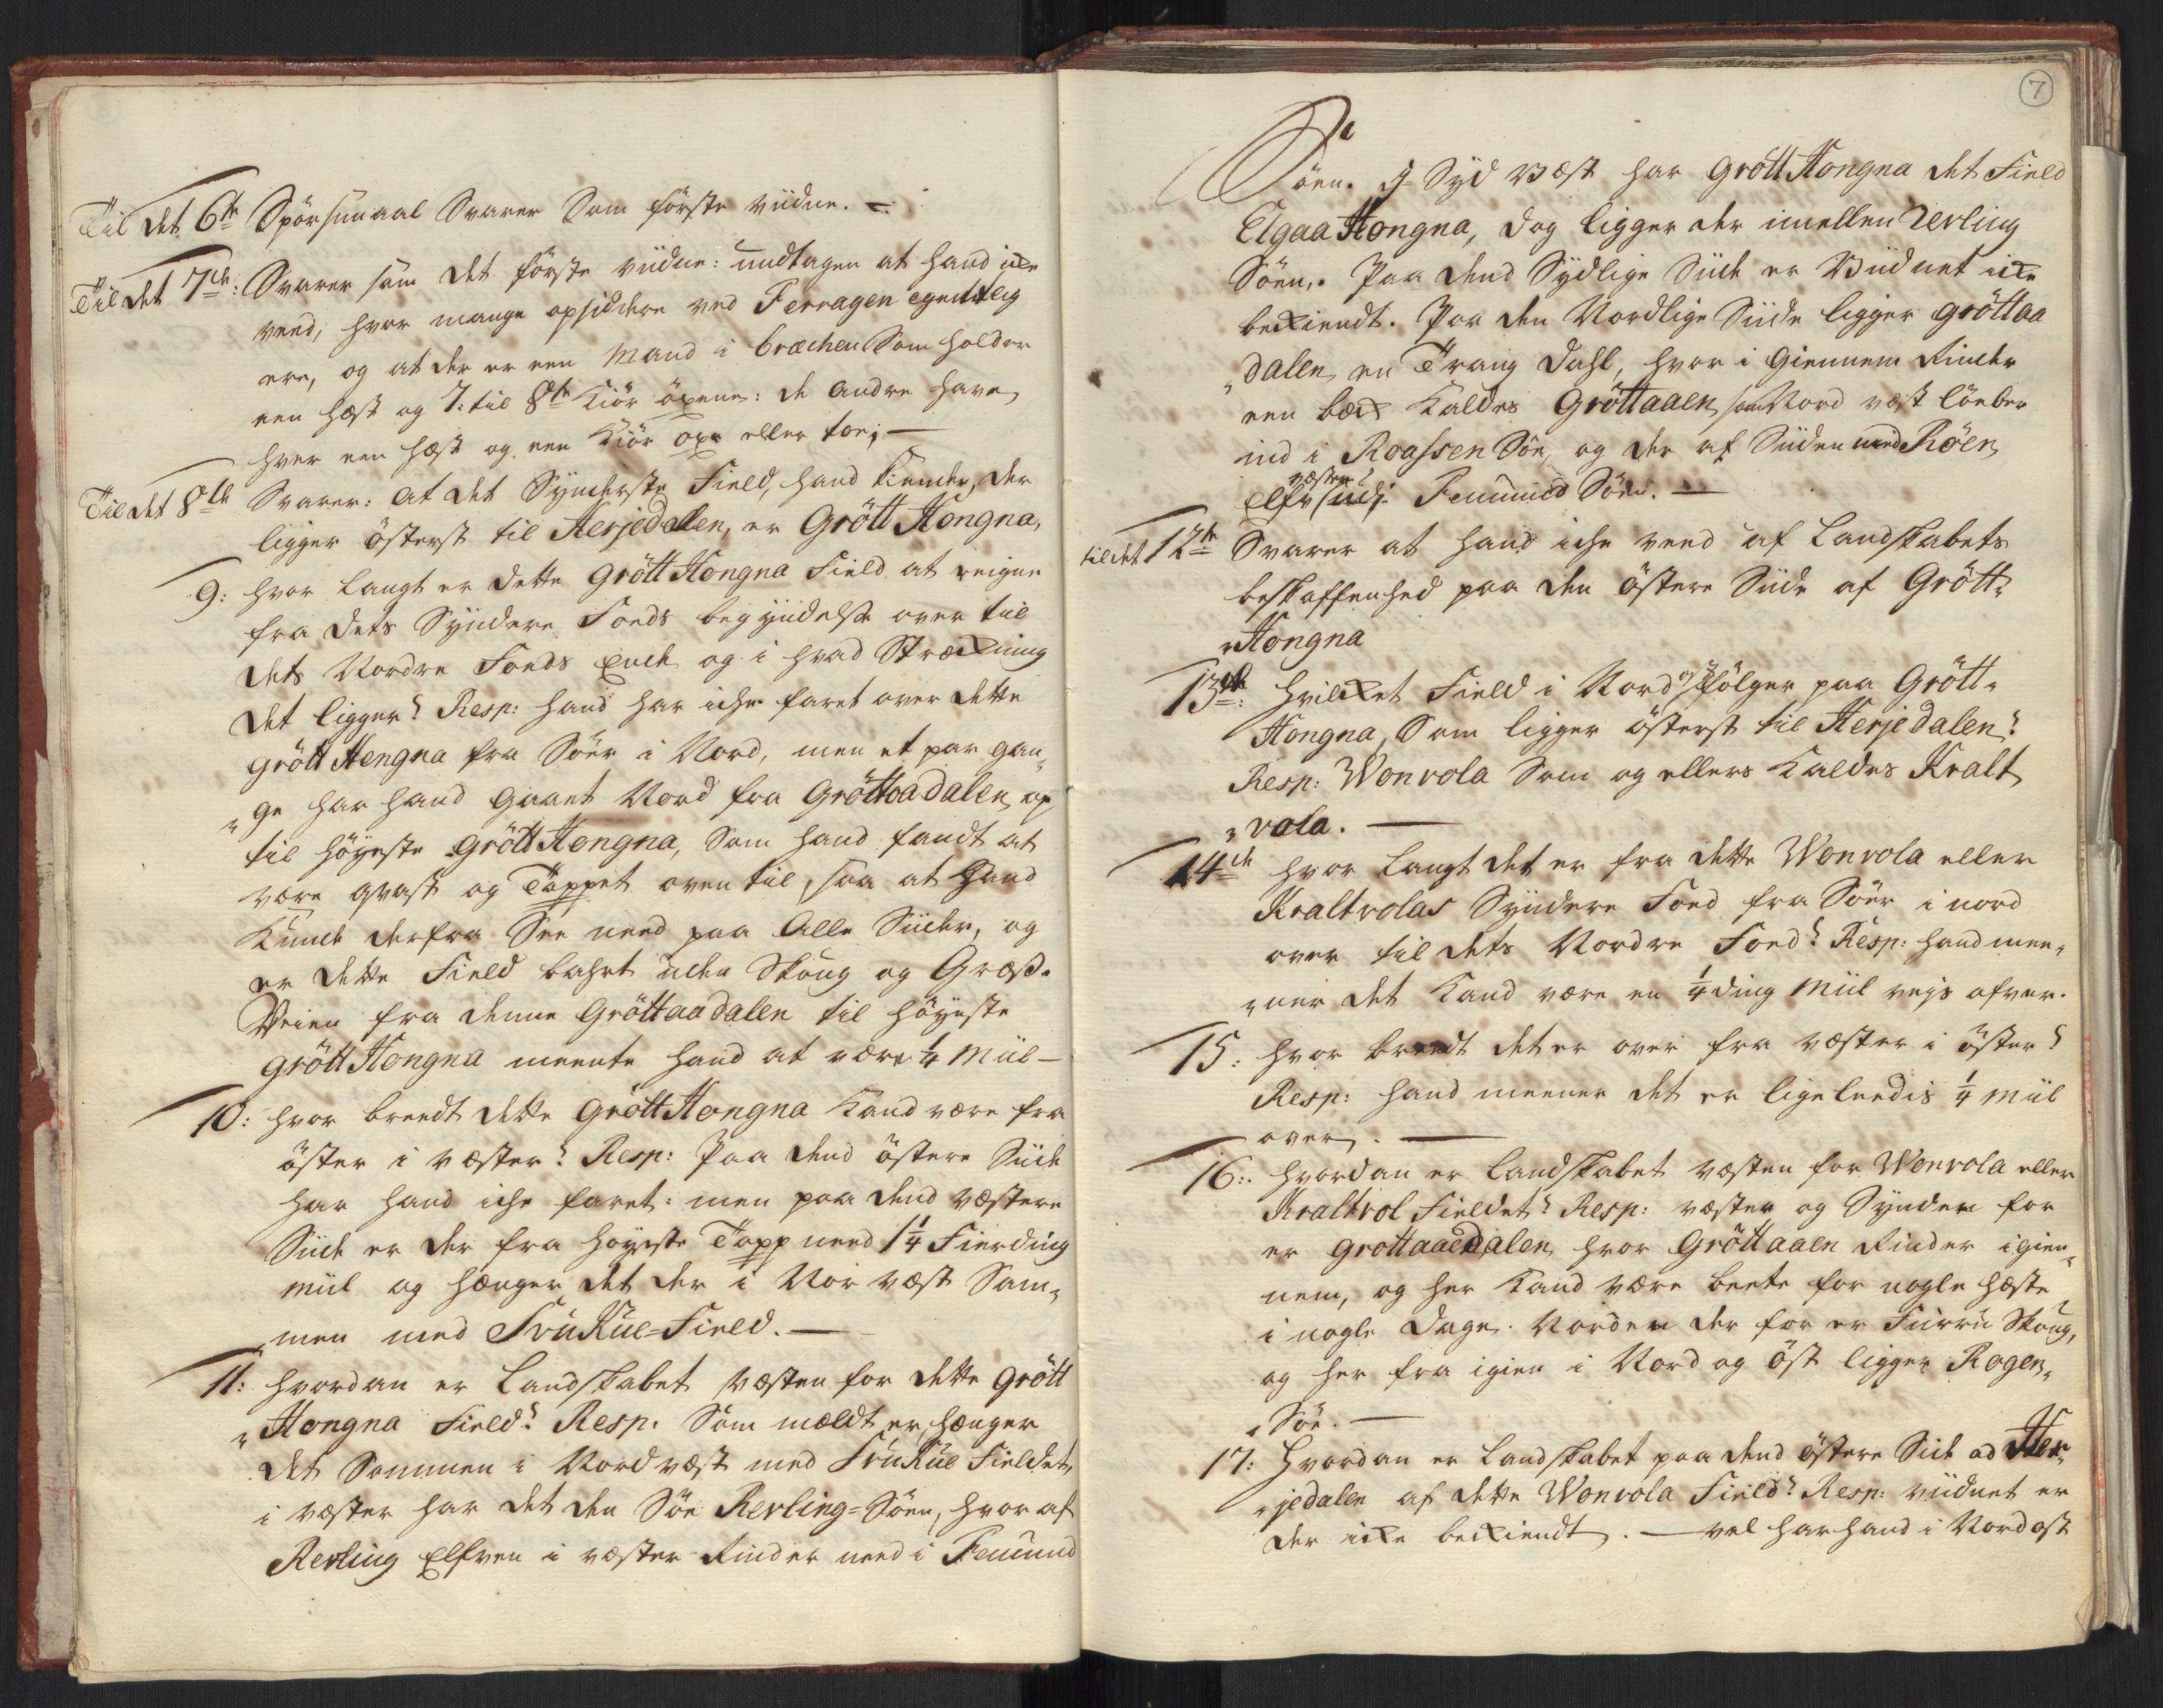 Til det 6te Spörsmaal Svarer Som förste viidne. —
Til det 7de: Svarer som det förste viidne: undtagen at hand icke
veed, hvor mange opsiddere ved Ferragen egentlig
ere, og at der er een Mand i bræchen Som holder
een hest og 7: til 8te Kiör öxene: de andre have
hver een hest og een Kiör oxe eller toe; —
Til det 8de Svarer: at det Synderste Field, hand kiender, der
ligger österst til Herjedalen, er Grött Hongna,
9: hvor langt er dette Grött Hongna Field at reigne
fra dets Syndere Foeds begyndelse over til
dets Nordre Foeds Ende og i hvad Strækning
det ligger? Resp: hand har iche faret over dette
Grött Hengna fra Söer i Nord, men et par gan„
„ge har hand gaaet Nord fra Gröttaadalen op
til höyeste Grött Hengna, Som hand fandt at
være qvast og Toppet oven til, saa at Hand
Kunde derfra See need paa alle Siider, og
er dette Field bahrt uden Skoug og Græs.
Veien fra denne Gröttaadalen til höyeste
Grött Hongna meente hand at være 1/4 Miil —
10: hvor breedt dette Grött Hongna Kand være fra
öster i væster? Resp: Paa dend östere Siide
har hand iche faret: men paa dend væstere
Siide er der fra höyeste Topp need 1 1/4 Fierding
miil og hænger det der i Nor væst Sam„
„men med Svukue=Field. —
11: hvordan er Landskabet væsten for dette Grött
„Hongna Field? Resp. Som meldt er, hænger
det Sammen i Nordvæst med Svukue Fieldet,
i væster har det den Söe Revling=Söen, hvor af
Revling Elfven i væster Rinder need i Femund
7
Söen. I Syd væst har Grött Hongna det Field
Elgaa Hongna, dog ligger der imellem Revling
Söen. Paa dend Sydlige Siide er Viidnet icke
beckiendt. Paa den Nordlige Siide ligger Gröttaa
„dalen en Trang Dahl, hvor i giennem Rinder
een beck Kaldes Gröttaaen, som Nord væst löeber
ind i Roassen Söe, og der af Siiden med Röen
væster
Elfv ind i Femund Söen. —
til det 12te Svarer at hand iche veed af Landskabets
beskaffenhed paa den östere Siide af Grött„
„Hongna
13de: hvilcket Field i Nord fölger paa Grött„
Hongna, Som ligger österst til Herjedalen?
Resp: Wonvola Som og ellers Kaldes Kralt
„vola. —
14de hvor langt det er fra dette Wonvola eller
Kraltvolas Syndere Foed fra Söer i nord
over til dets Nordre Foed? Resp: hand mee„
„ner det Kand være en 1/4ding Miil veys ofver.
15: hvor breedt det er over fra væster i öster?
Resp: hand meener det er ligeleedis 1/4 Miil
over. —
16: hvordan er Landskabet væsten for Wonvola eller
Kraltvol Fieldet? Resp: væster og Synden for
er Grottaaedalen, hvor Gröttaaen Rinder igien„
nem, og her Kand være beete for nogle hæste
i nogle Dage. Norden der for er Furru Skoug,
og her fra igien i Nord og öst ligger Rogen„
„Söe. —
17: Hvordan er Landskabet paa dend östere Side ad Her„
„jedalen af dette Wonvola Field? Resp: viidnet er
der icke beckiendt. — vel har hand i Nordost